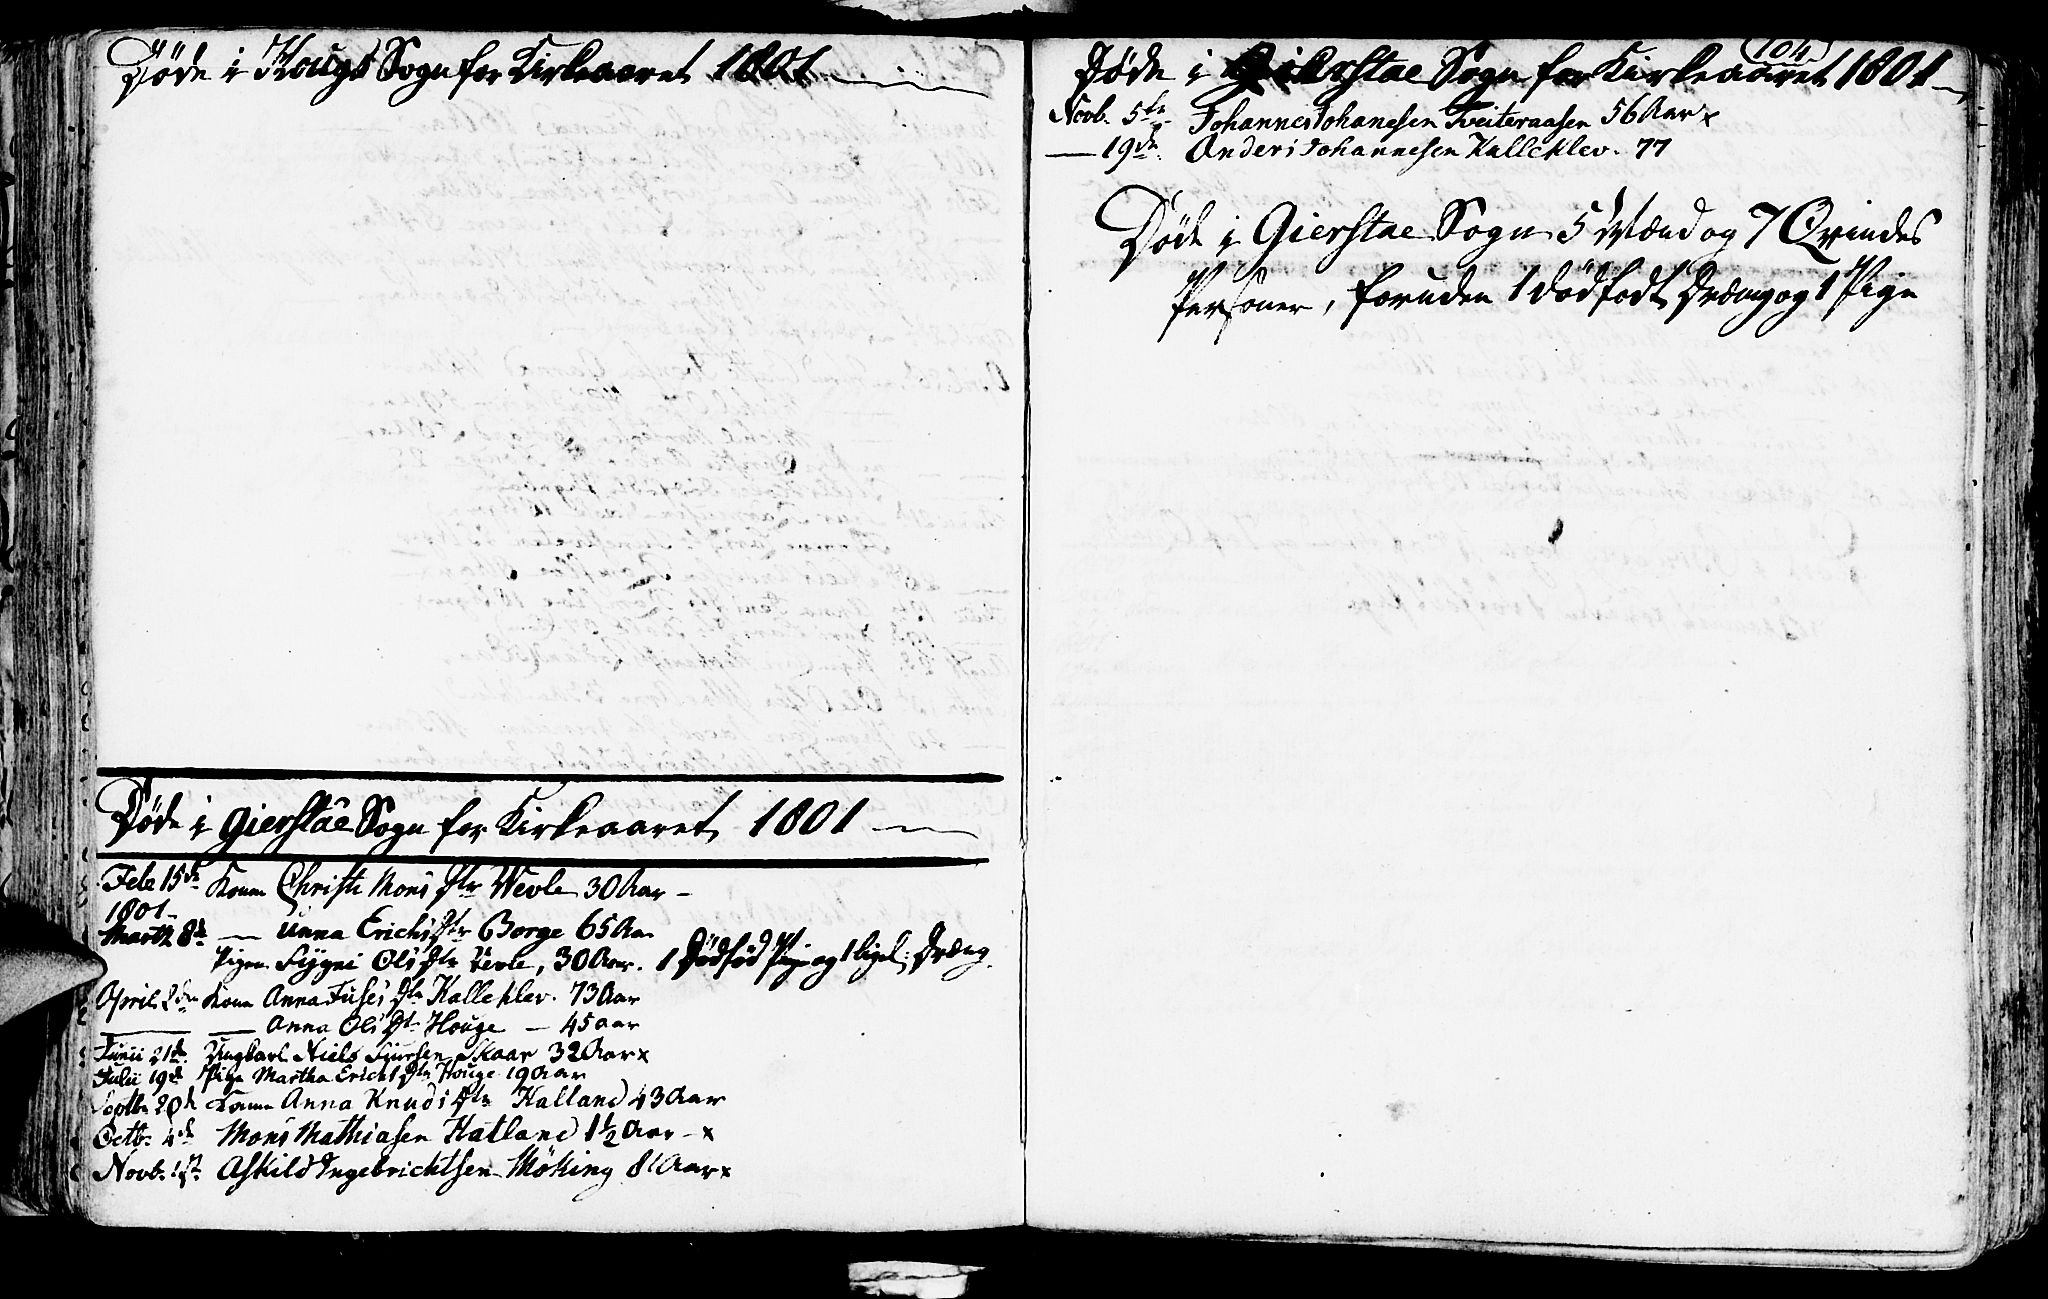 Døde i Hougs Sogn for Kirkeaaret 1801
Døde i Gierstae Sogn for Kirkeaaret 1801
Febr 15de Konen Christi Mons Dtr Wevle 30 Aar –
1801 –
Marti 8de — Unna Erichs Dtr Borge 65 Aar
Pigen Sygni Ols Dtr Vevle, 30 Aar. 1 Dødfød Pige og 1 ligel: Dræng.
April 2den Konen Anna Fuses Dtr Kalleklev. 73 Aar
— — Anna Ols Dtr Houge — 45 aar
Junii 21de Ungkarl Niels Sjursen Skaar 32 Aar x
Julii 19de Pige Martha Erichs Dtr Houge 19 Aar
Septbr 20de Konen Anna Knuds Dtr Hatland 43 Aar
Octb: 4de Mons Mathiasen Hatland 1½ Aar – x
Novb. 1ste Askild Ingebrichtsen Möking 81 Aar x
104
Døde i Gierstae Sogn for Kirkeaaret 1801
Novb. 5te Johannes Johanesen Tveiteraasen 56 Aar x
— 19de Anders Johannesen Kalleklev. 77
Døde i Gierstae Sogn 5 Mænd og 7 Qvindes
Personer, foruden 1 dödfødt Dræng og 1 Pige